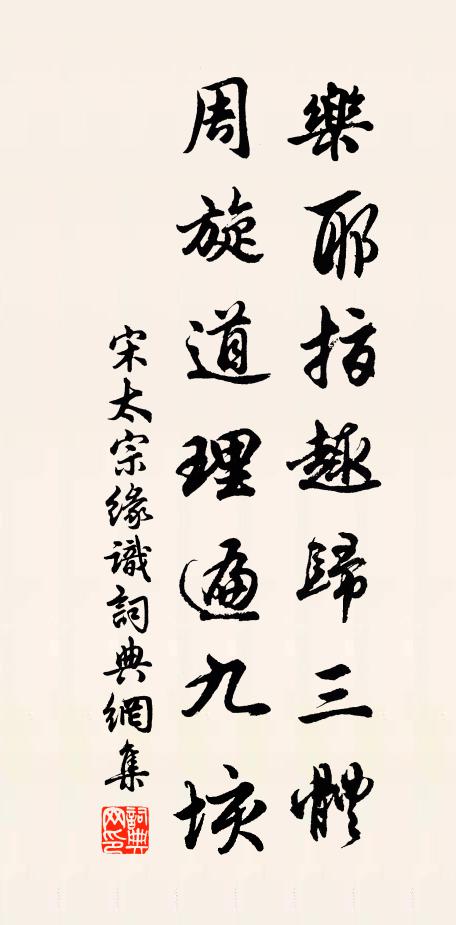 樂耶指趣歸三體
周旋道理遍九垓
宋太宗緣識詞典網集
詞典網印